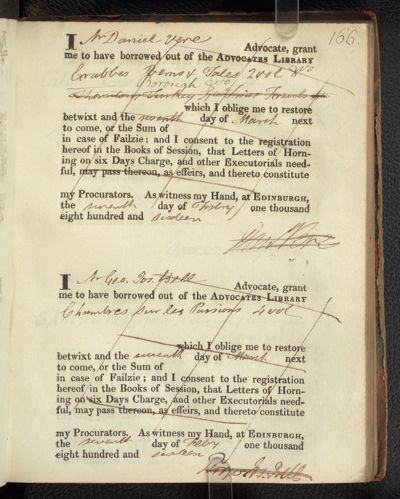 166.
I Mr Daniel Vere Advocate, grant
me to have borrowed out of the ADVOCATES LIBRARY
Crabbes Poems & Tales 2 vol 8vo
Borough 8vo
Turkey Travels
which I oblige me to restore
betwixt and the seventh day of March next
to come, or the Sum of
in case of Failzie; and I consent to the registration
hereof in the Books of Session, that Letters of Horn-
ing on six Days Charge, and other Executorials need-
ful, may pass thereon, as effeirs, and thereto constitute
my Procurators. As witness my Hand, at EDINBURGH,
the seventh day of Feby one thousand
eight hundred and sixteen
Vere
I Mr Geo. Jos. Bell Advocate, grant
me to have borrowed out of the ADVOCATES LIBRARY
Chambres sur les Passions 4 vol
which I oblige me to restore
betwixt and the seventh day of March next
to come, or the Sum of
in case of Failzie; and I consent to the registration
hereof in the Books of Session, that Letters of Horn-
ing on six Days Charge, and other Executorials need-
ful, may pass thereon, as effeirs, and thereto constitute
my Procurators. As witness my Hand, at EDINBURGH,
the seventh day of Feby one thousand
eight hundred and sixteen
Jos. Bell